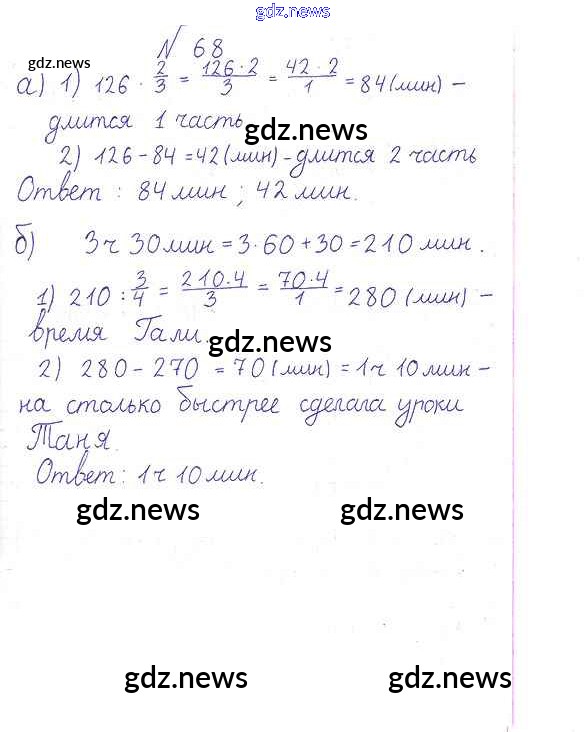 gdz.news
№ 68
gdz.news
а) 1) 126 · 2/3 = 126·2/3 = 42·2/1 = 84 (мин) –
длится 1 часть
gdz.news
2) 126 – 84 = 42 (мин) – длится 2 часть
Ответ : 84 мин ; 42 мин.
б) 3 ч 30 мин = 3·60 + 30 = 210 мин.
1) 210 : 3/4 = 210·4/3 = 70·4/1 = 280 (мин) –
время Гали.
gdz.news
2) 280 – 270 = 70 (мин) = 1 ч 10 мин –
на столько быстрее сделала уроки
Таня.
Ответ: 1 ч 10 мин.
gdz.news gdz.news
gdz.news gdz.news